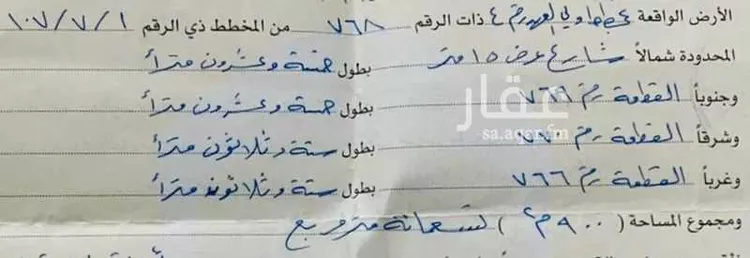 الأرض الواقعة بمخطط ولي العهد رقم ٤ ذات الرقم ٧٦٨ من المخطط ذي الرقم ١٠٧/٧/١
المحدودة شمالاً شارع عرض ١٥ متر بطول خمسة وعشرون متراً
وجنوباً القطعة رقم ٧٦٩ بطول خمسة وعشرون متراً
عقار
sa.aqar.fm
وشرقاً القطعة رقم بطول ستة وثلاثون متراً
وغرباً القطعة رقم ٧٦٦ بطول ستة وثلاثون متراً
ومجموع المساحة ( ٩٠٠ م٢ ) تسعمائة متر مربع